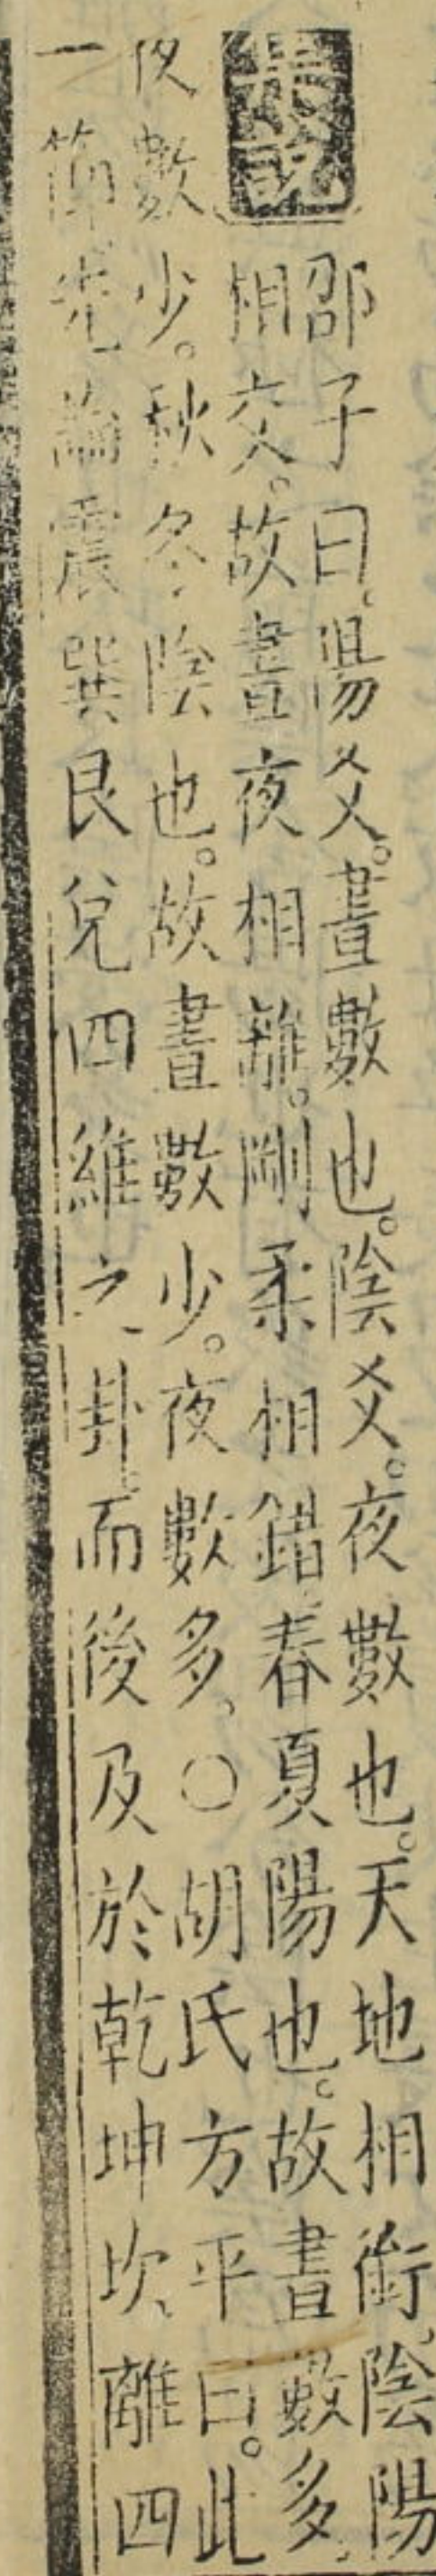 集說
邵子曰、陽爻。晝數也。陰爻。夜數也。天地相銜、陰陽
相交。故晝夜相離。剛柔相錯、春夏陽也。故晝數多、
夜數少。秋冬陰也。故晝數少。夜數多、○胡氏方平曰。此
一節、先論震巽艮兌四維之卦、而後及於乾坤坎、離四